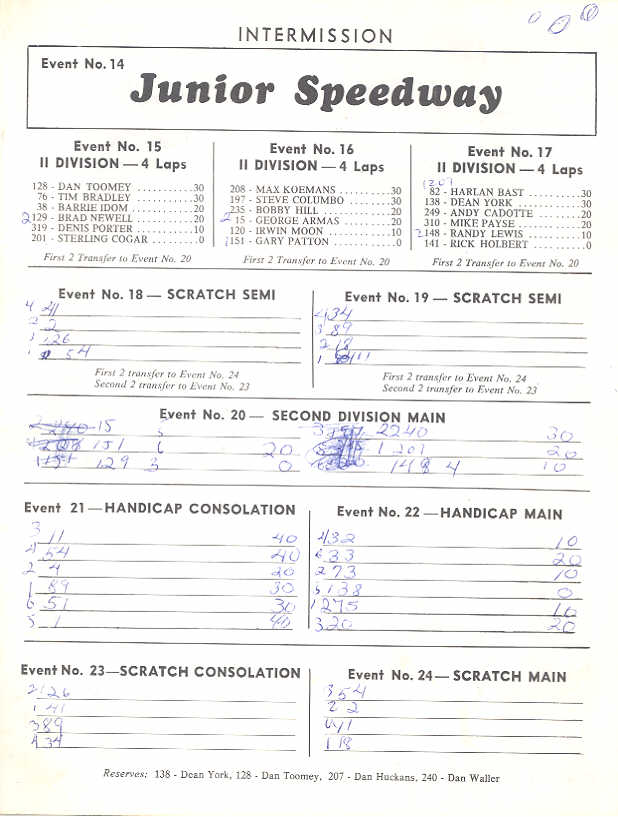 INTERMISSION
Event No. 14
Junior Speedway
Event No. 15
II DIVISION — 4 Laps
128 - DAN TOOMEY ...........30
76 - TIM BRADLEY ..........30
38 - BARRIE IDOM ..........20
2 129 - BRAD NEWELL ..........20
319 - DENIS PORTER ..........10
201 - STERLING COGAR .........0
First 2 Transfer to Event No. 20
Event No. 16
II DIVISION — 4 Laps
208 - MAX KOEMANS ..........30
197 - STEVE COLUMBO .........30
235 - BOBBY HILL ...........20
2 15 - GEORGE ARMAS .........20
120 - IRWIN MOON ...........10
1 151 - GARY PATTON ...........0
First 2 Transfer to Event No. 20
Event No. 17
II DIVISION — 4 Laps
1 207
82 - HARLAN BAST ..........30
138 - DEAN YORK ............30
249 - ANDY CADOTTE .........20
310 - MIKE PAYSE ............20
2 148 - RANDY LEWIS ..........10
141 - RICK HOLBERT ..........0
First 2 Transfer to Event No. 20
Event No. 18 — SCRATCH SEMI
4 41
2 2
3 126
1 54
First 2 transfer to Event No. 24
Second 2 transfer to Event No. 23
Event No. 19 — SCRATCH SEMI
4 34
3 89
2 18
1 11
First 2 transfer to Event No. 24
Second 2 transfer to Event No. 23
Event No. 20 — SECOND DIVISION MAIN
15 5
151 6 20
129 3 0
2 240 30
1 201 20
148 4 10
Event 21 — HANDICAP CONSOLATION
3 11 40
4 54 40
2 4 20
1 89 30
6 51 30
5 1 40
Event No. 22 — HANDICAP MAIN
4 32 10
6 33 20
2 73 10
5 138 0
1 275 10
3 20 20
Event No. 23—SCRATCH CONSOLATION
2 126
1 41
3 89
4 34
Event No. 24— SCRATCH MAIN
3 54
2 2
4 11
1 18
Reserves: 138 - Dean York, 128 - Dan Toomey, 207 - Dan Huckans, 240 - Dan Waller